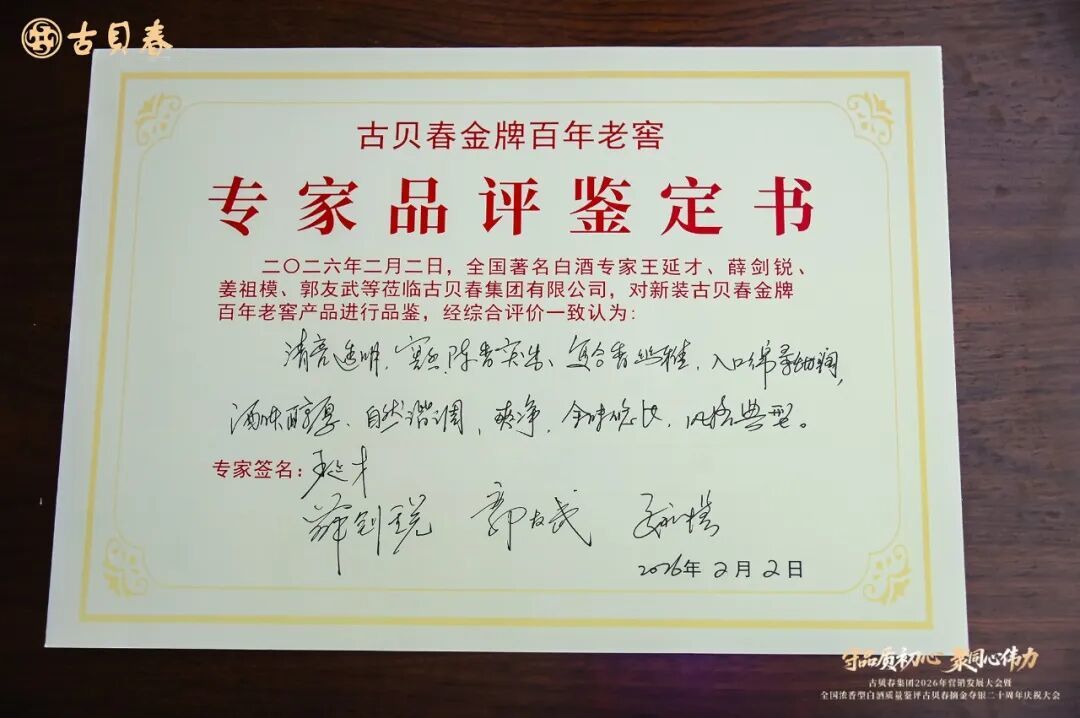 古贝春
古贝春金牌百年老窖
专家品评鉴定书
二〇二六年二月二日，全国著名白酒专家王延才、薛剑锐、
姜祖模、郭友武等莅临古贝春集团有限公司，对新装古贝春金牌
百年老窖产品进行品鉴，经综合评价一致认为：
清亮透明，窖香、陈香突出、复合香幽雅，入口绵柔细润，
酒体醇厚、自然谐调，爽净，余味悠长，风格典型。
专家签名：王延才
薛剑锐 郭友武 姜祖模
2026年2月2日
守品质初心 聚同心伟力
古贝春集团2026年营销发展大会暨
全国浓香型白酒质量鉴评古贝春摘金夺银二十周年庆祝大会